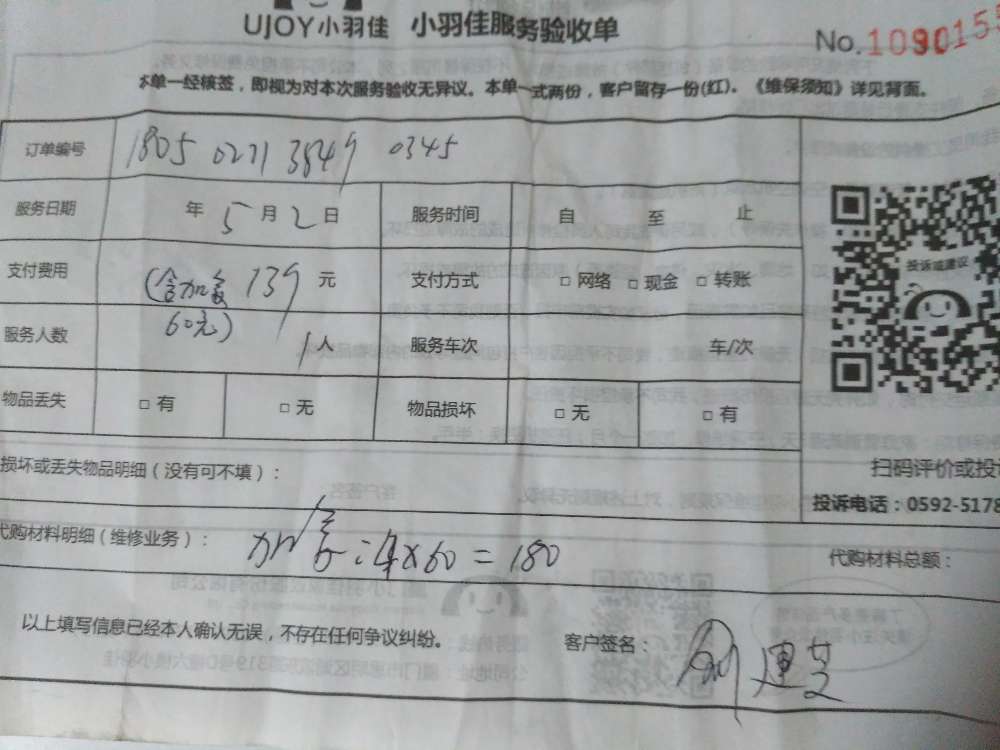 UJOY小羽佳 小羽佳服务验收单
No.109015
本单一经核签，即视为对本次服务验收无异议。本单一式两份，客户留存一份(红)。《维保须知》详见背面。
订单编号 1805 0271 3849 0345
服务日期 年 5 月 2 日 服务时间 自 至 止
支付费用 (含加氟60元) 139 元 支付方式 □ 网络 □ 现金 □ 转账
服务人数 1 人 服务车次 车/次
物品丢失 □ 有 □ 无 物品损坏 □ 无 □ 有
投诉或建议
损坏或丢失物品明细（没有可不填）：
扫码评价或投
投诉电话：0592-5178
代购材料明细（维修业务）： × 60 = 180
代购材料总额：
以上填写信息已经本人确认无误，不存在任何争议纠纷。
客户签名：